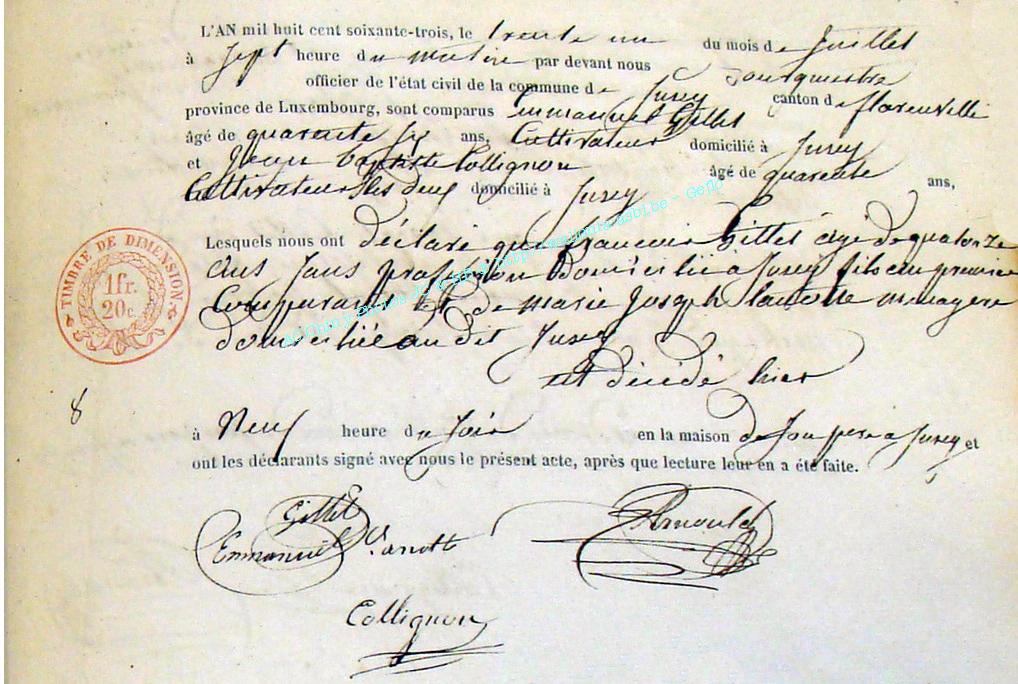 L'AN mil huit cent soixante-trois, le trente un du mois de Juillet
à Sept heure du matin par devant nous Bourgmestre
officier de l'état civil de la commune de Jusey canton de florenville
province de Luxembourg, sont comparus Emmanuel Gillet
âgé de quarante six ans, Cultivateur domicilié à Jusey
et Jean Baptiste Collignon âgé de quarante ans,
Cultivateur les deux domicilié à Jusey
Lesquels nous ont déclaré que francois Gillet agé de quatorze
ans sans profession Domicilié à Jusey fils du premier
Comparant Et de marie Joseph menagere
domiciliée au dit Jusey
est décédé hier
à Neuf heure du Soir en la maison de son pere a Jusey et
ont les déclarants signé avec nous le présent acte, après que lecture leur en a été faite.
TIMBRE DE DIMENSION
1 fr.
20 c.
8
Gillet
Emmanuel
Arnould
Collignon